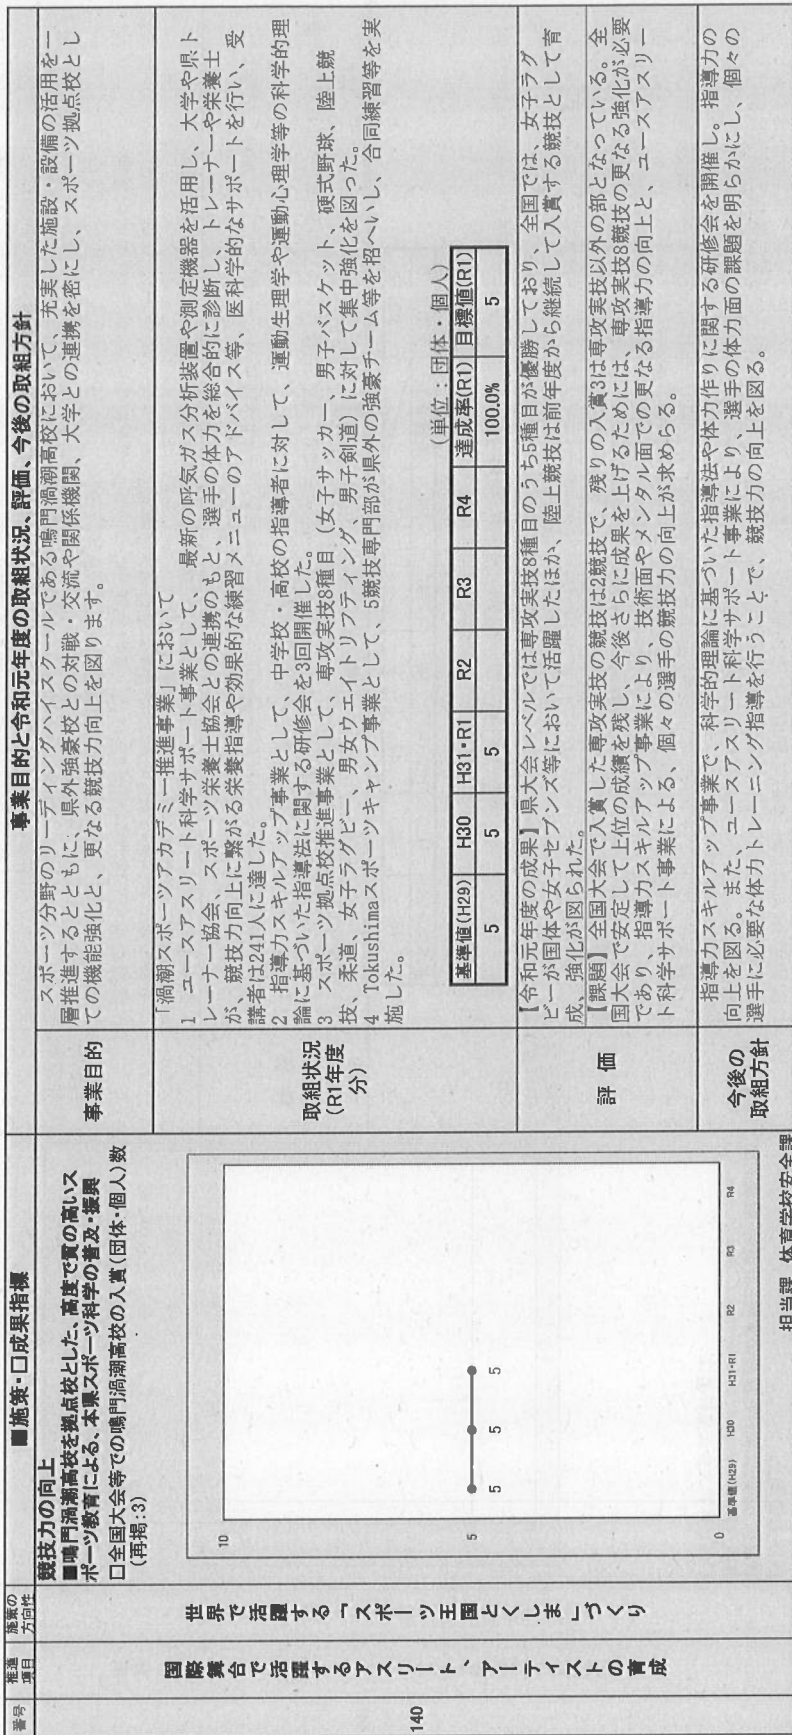 番号
推進
項目
施策の
方向性
■施策・□成果指標
事業目的と令和元年度の取組状況、評価、今後の取組方針
140
国際舞台で活躍するアスリート、アーティストの育成
世界で活躍する「スポーツ王国とくしま」づくり
競技力の向上
■鳴門渦潮高校を拠点校とした、高度で質の高いス
ポーツ教育による、本県スポーツ科学の普及・振興
□全国大会等での鳴門渦潮高校の入賞(団体・個人)数
(再掲:3)
10
5
0
5
5
5
基準値(H29)
H30
H31・R1
R2
R3
R4
担当課 体育学校安全課
事業目的
スポーツ分野のリーディングハイスクールである鳴門渦潮高校において、充実した施設・設備の活用を一
層推進するとともに、県外強豪校との対戦・交流や関係機関、大学との連携を密にし、スポーツ拠点校とし
ての機能強化と、更なる競技力向上を図ります。
取組状況
(R1年度
分)
「渦潮スポーツアカデミー推進事業」において
1 ユースアスリート科学サポート事業として、最新の呼気ガス分析装置や測定機器を活用し、大学や県ト
レーナー協会、スポーツ栄養士協会との連携のもと、選手の体力を総合的に診断し、トレーナーや栄養士
が、競技力向上に繋がる栄養指導や効果的な練習メニューのアドバイス等、医科学的なサポートを行い、受
講者は241人に達した。
2 指導力スキルアップ事業として、中学校・高校の指導者に対して、運動生理学や運動心理学等の科学的理
論に基づいた指導法に関する研修会を3回開催した。
3 スポーツ拠点校推進事業として、専攻実技8種目(女子サッカー、男子バスケット、硬式野球、陸上競
技、柔道、女子ラグビー、男女ウエイトリフティング、男子剣道)に対して集中強化を図った。
4 Tokushimaスポーツキャンプ事業として、5競技専門部が県外の強豪チーム等を招へいし、合同練習等を実
施した。
(単位:団体・個人)
基準値(H29) H30 H31・R1 R2 R3 R4 達成率(R1) 目標値(R1)
5 5 5 100.0% 5
評 価
【令和元年度の成果】県大会レベルでは専攻実技8種目のうち5種目が優勝しており、全国では、女子ラグ
ビーが国体や女子セブンズ等において活躍したほか、陸上競技は前年度から継続して入賞する競技として育
成、強化が図られた。
【課題】全国大会で入賞した専攻実技の競技は2競技で、残りの入賞3は専攻実技以外の部となっている。全
国大会で安定して上位の成績を残し、今後さらに成果を上げるためには、専攻実技8競技の更なる強化が必要
であり、指導力スキルアップ事業により、技術面やメンタル面での更なる指導力の向上と、ユースアスリー
ト科学サポート事業による、個々の選手の競技力の向上が求めらる。
今後の
取組方針
指導力スキルアップ事業で、科学的理論に基づいた指導法や体力作りに関する研修会を開催し、指導力の
向上を図る。また、ユースアスリート科学サポート事業により、選手の体力面の課題を明らかにし、個々の
選手に必要な体力トレーニング指導を行うことで、競技力の向上を図る。